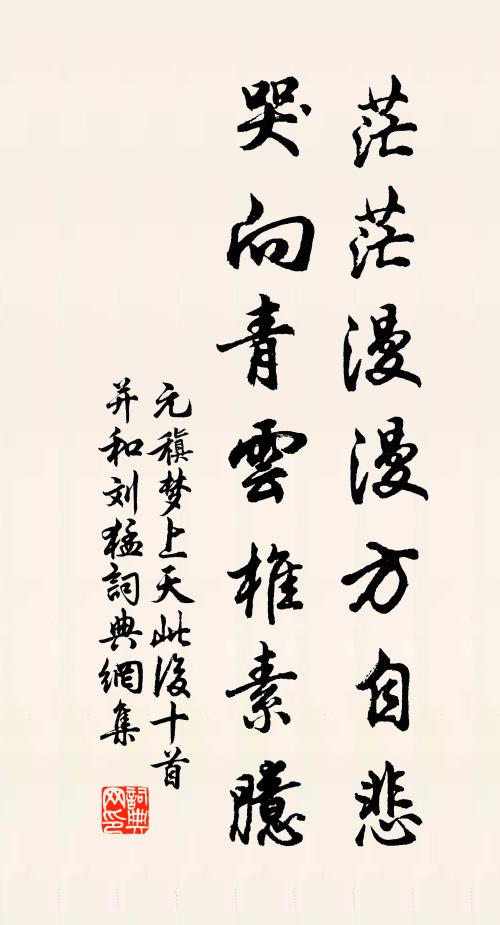 茫茫漫漫方自悲
哭向青雲椎素臆
元稹梦上天此後十首
并和刘猛詞典網集
詞典网印